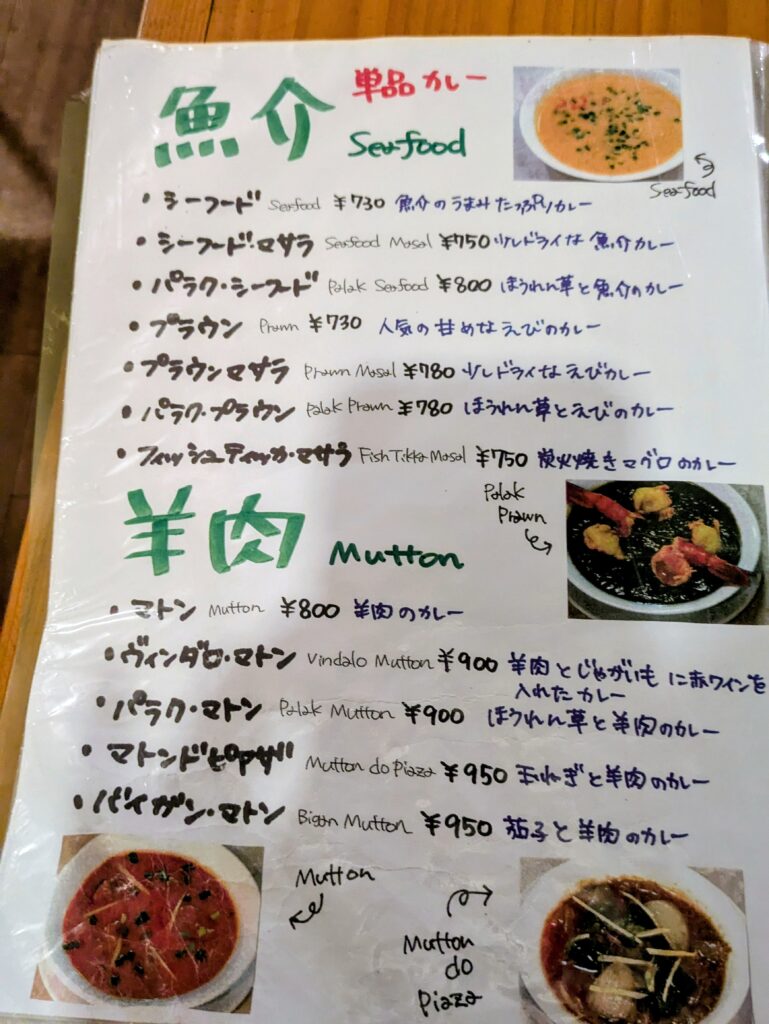 魚介 単品カレー
Seafood
Seafood
・シーフード Seafood ¥730 魚介のうまみたっぷりカレー
・シーフード・マサラ Seafood Masal ¥750 少しドライな魚介カレー
・パラク・シーフード Palak Seafood ¥800 ほうれん草と魚介のカレー
・プラウン Prawn ¥730 人気の甘めなえびのカレー
・プラウンマサラ Prawn Masal ¥780 少しドライなえびカレー
・パラク・プラウン Palak Prawn ¥780 ほうれん草とえびのカレー
・フィッシュティッカ・マサラ Fish Tikka Masal ¥750 炭火焼きマグロのカレー
Palak
Prawn
羊肉 Mutton
・マトン Mutton ¥800 羊肉のカレー
・ヴィンダロ・マトン Vindalo Mutton ¥900 羊肉とじゃがいもに赤ワインを
入れたカレー
・パラク・マトン Palak Mutton ¥900 ほうれん草と羊肉のカレー
・マトンドピアザ Mutton do Piaza ¥950 玉ねぎと羊肉のカレー
・バイガン・マトン Bigan Mutton ¥950 茄子と羊肉のカレー
Mutton
Mutton
do
Piaza